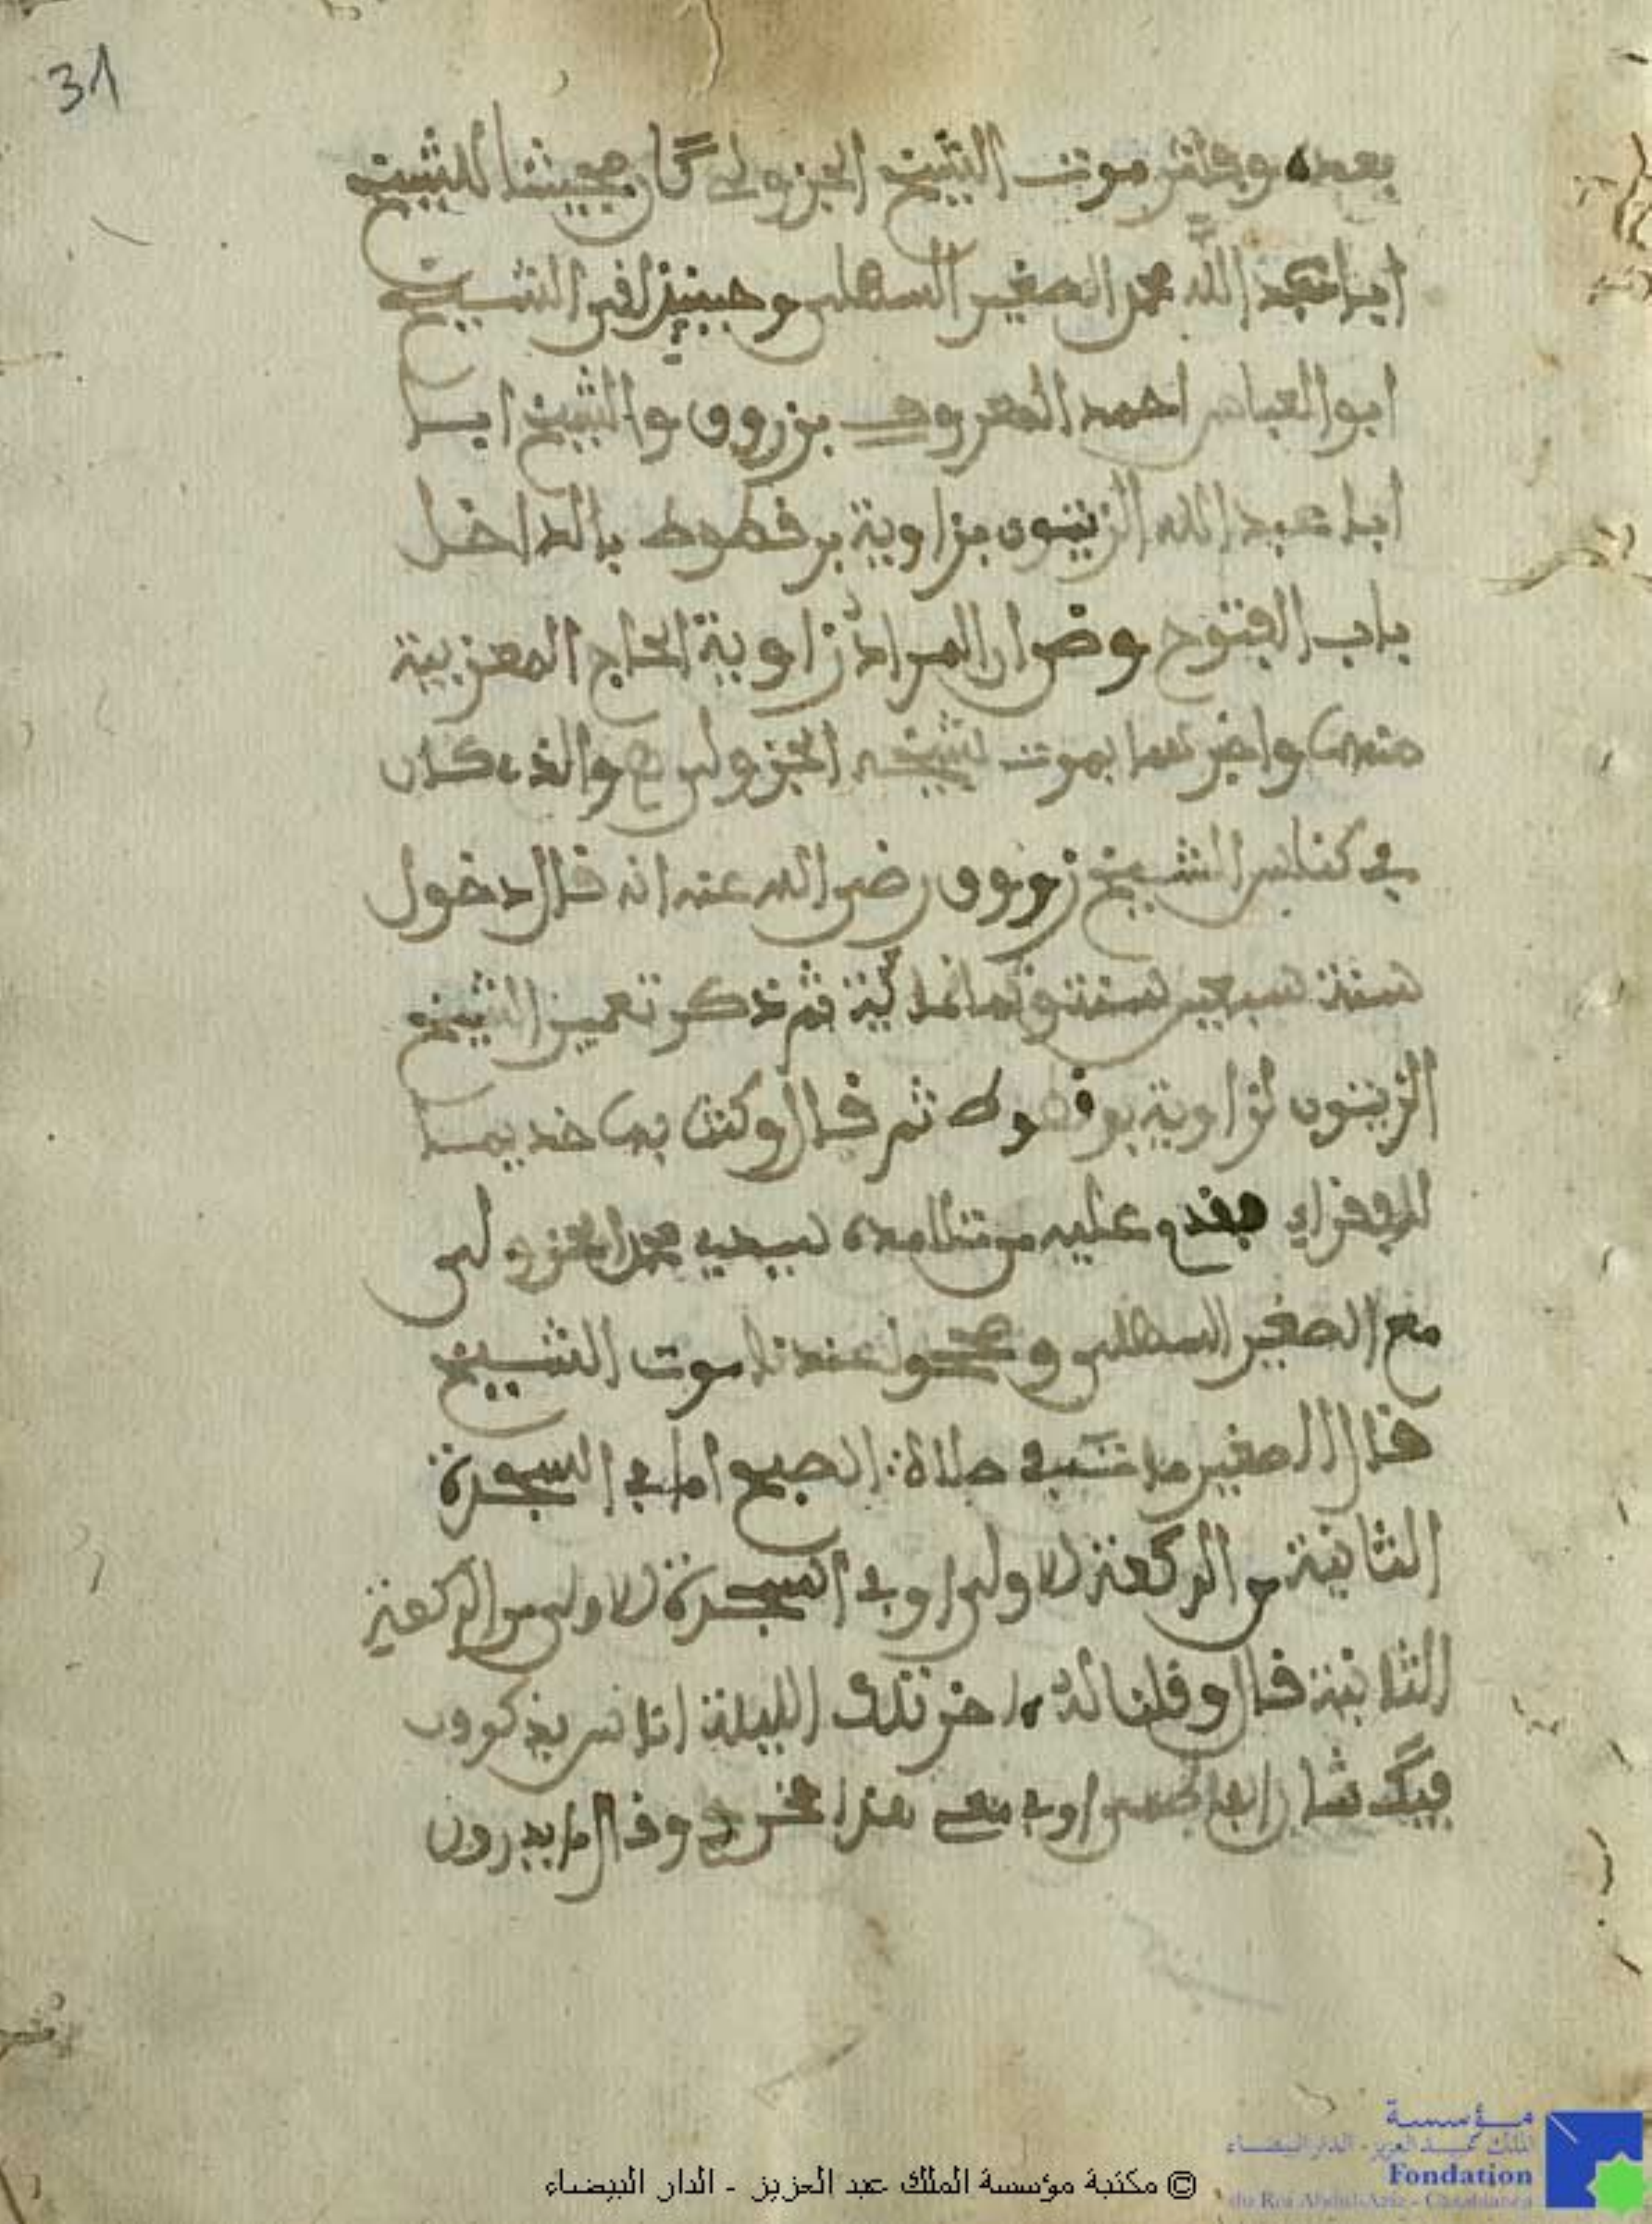 31
بعده وبإثر موت الشيخ الجزولي كان مجيئنا للشيخ
أبا عبد الله محمد الصغير السهلي وحينئذ لقي الشيخ
ابو العباس احمد المعروف بزروق والشيخ ابا
ابا عبد الله الزيتوني بزاوية بوقطوط بالداخل
باب الفتوح وصوار المراد زاوية الحاج المغربية
منها واخبرهما بموت شيخه الجزولي والذي كان
في كناش الشيخ زروق رضي الله عنه انه قال دخول
سنة سبعين سنة وثمانمائية ثم ذكر تعمير الشيخ
الزيتوني لزاوية بوقطوط ثم قال وكنت بها خديما
للفقراء فقدم عليه من تلامدة سيدي محمد الجزولي
مع الصغير السهلي وصححوا عندنا موت الشيخ
قال الصغير مات في صلاة الصبح اما في السجدة
الثانية من الركعة الاولى او في السجدة الاولى من الركعة
الثانية قال وقلنا له اخر تلك الليلة الناس يذكرون
هذا وقال ما يدرون
© مكتبة مؤسسة الملك عبد العزيز - الدار البيضاء
مؤسسة
الملك عبد العزيز - الدار البيضاء
Fondation
du Roi Abdul-Aziz - Casablanca